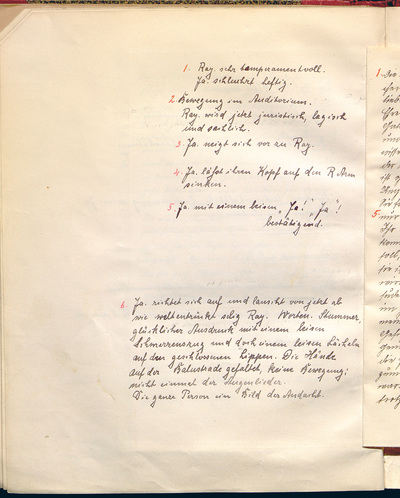 1. Ray. sehr temperamentvoll.
Ja. schluchzt heftig.
2. Bewegung im Auditorium.
Ray. wird jetzt juristisch, logisch
und sachlich.
3. Ja. neigt sich vor zu Ray.
4. Ja. läßt ihren Kopf auf den R. Arm
sinken.
5. Ja. mit einem leisen „Ja!", „Ja"!
bestätigend.
6. Ja. richtet sich auf und lauscht von jetzt ab
wie weltentrückt selig Ray. Worten. Stummer,
glücklicher Ausdruck mit einem leisen
Schmerzenszug und doch einem leisen Lächeln
auf den geschlossenen Lippen. Die Hände
auf der Balustrade gefaltet, keine Bewegung;
nicht einmal der Augenlieder.
Die ganze Person ein Bild der Andacht.
1. Die
5.